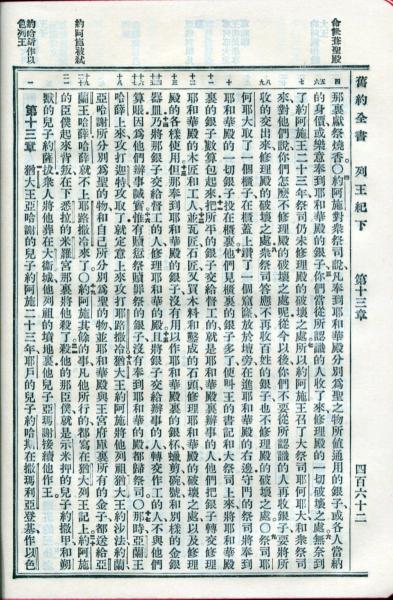 舊約全書 列王紀下 第十三章 四百六十二
那裏獻祭燒香○約阿施對衆祭司說凡奉到耶和華殿分別爲聖之物所值通用的銀子或各人當納
的身價或樂意奉到耶和華殿的銀子你們當從所認識的人收了來修理殿的一切破壞之處無奈到
了約阿施王二十三年祭司仍未修理殿的破壞之處所以約阿施王召了大祭司耶何耶大和衆祭司
來對他們說你們怎麽不修理殿的破壞之處呢從今以後你們不要從所認識的人再收銀子要將所
收的交出來修理殿的破壞之處衆祭司答應不再收百姓的銀子也不修理殿的破壞之處○祭司耶
何耶大取了一個櫃子在櫃蓋上鑽了一個窟窿放於壇旁在進耶和華殿的右邊守門的祭司將奉到
耶和華殿的一切銀子投在櫃裏他們見櫃裏的銀子多了便叫王的書記和大祭司上來將耶和華殿
裏的銀子數算包起來把所平的銀子交給督工的就是耶和華殿裏辦事的人他們把銀子轉交修理
耶和華殿的木匠和工人並瓦匠石匠又買木料和鑿成的石頭修理耶和華殿的破壞之處以及修理
殿的各樣使用但那奉到耶和華殿的銀子沒有用以作耶和華殿裏的銀杯蠟剪碗號和別樣的金銀
器皿乃將那銀子交給督工的人修理耶和華的殿且將銀子交給辦事的人轉交作工的人不與他們
算賬因爲他們辦事誠實惟有贖愆祭贖罪祭的銀子沒有奉到耶和華的殿都歸祭司○那時亞蘭王
哈薛上來攻打迦特攻取了就定意上來攻打耶路撒冷猶大王約阿施將他列祖猶大王約沙法約蘭
亞哈謝所分別爲聖的物和自己所分別爲聖的物並耶和華殿與王宮府庫裏所有的金子都送給亞
蘭王哈薛哈薛就不上耶路撒冷來了○約阿施其餘的事凡他所行的都寫在猶大列王記上約阿施
的臣僕起來背叛在下悉拉的米羅宮那裏將他殺了殺他的那臣僕就是示米押的兒子約撒甲和朔
默的兒子約薩拔衆人將他葬在大衛城他列祖的墳地裏他兒子亞瑪謝接續他作王
第十三章 猶大王亞哈謝的兒子約阿施二十三年耶戶的兒子約哈斯在撒瑪利亞登基作以色
約阿施被弒
約哈斯作以
色列王